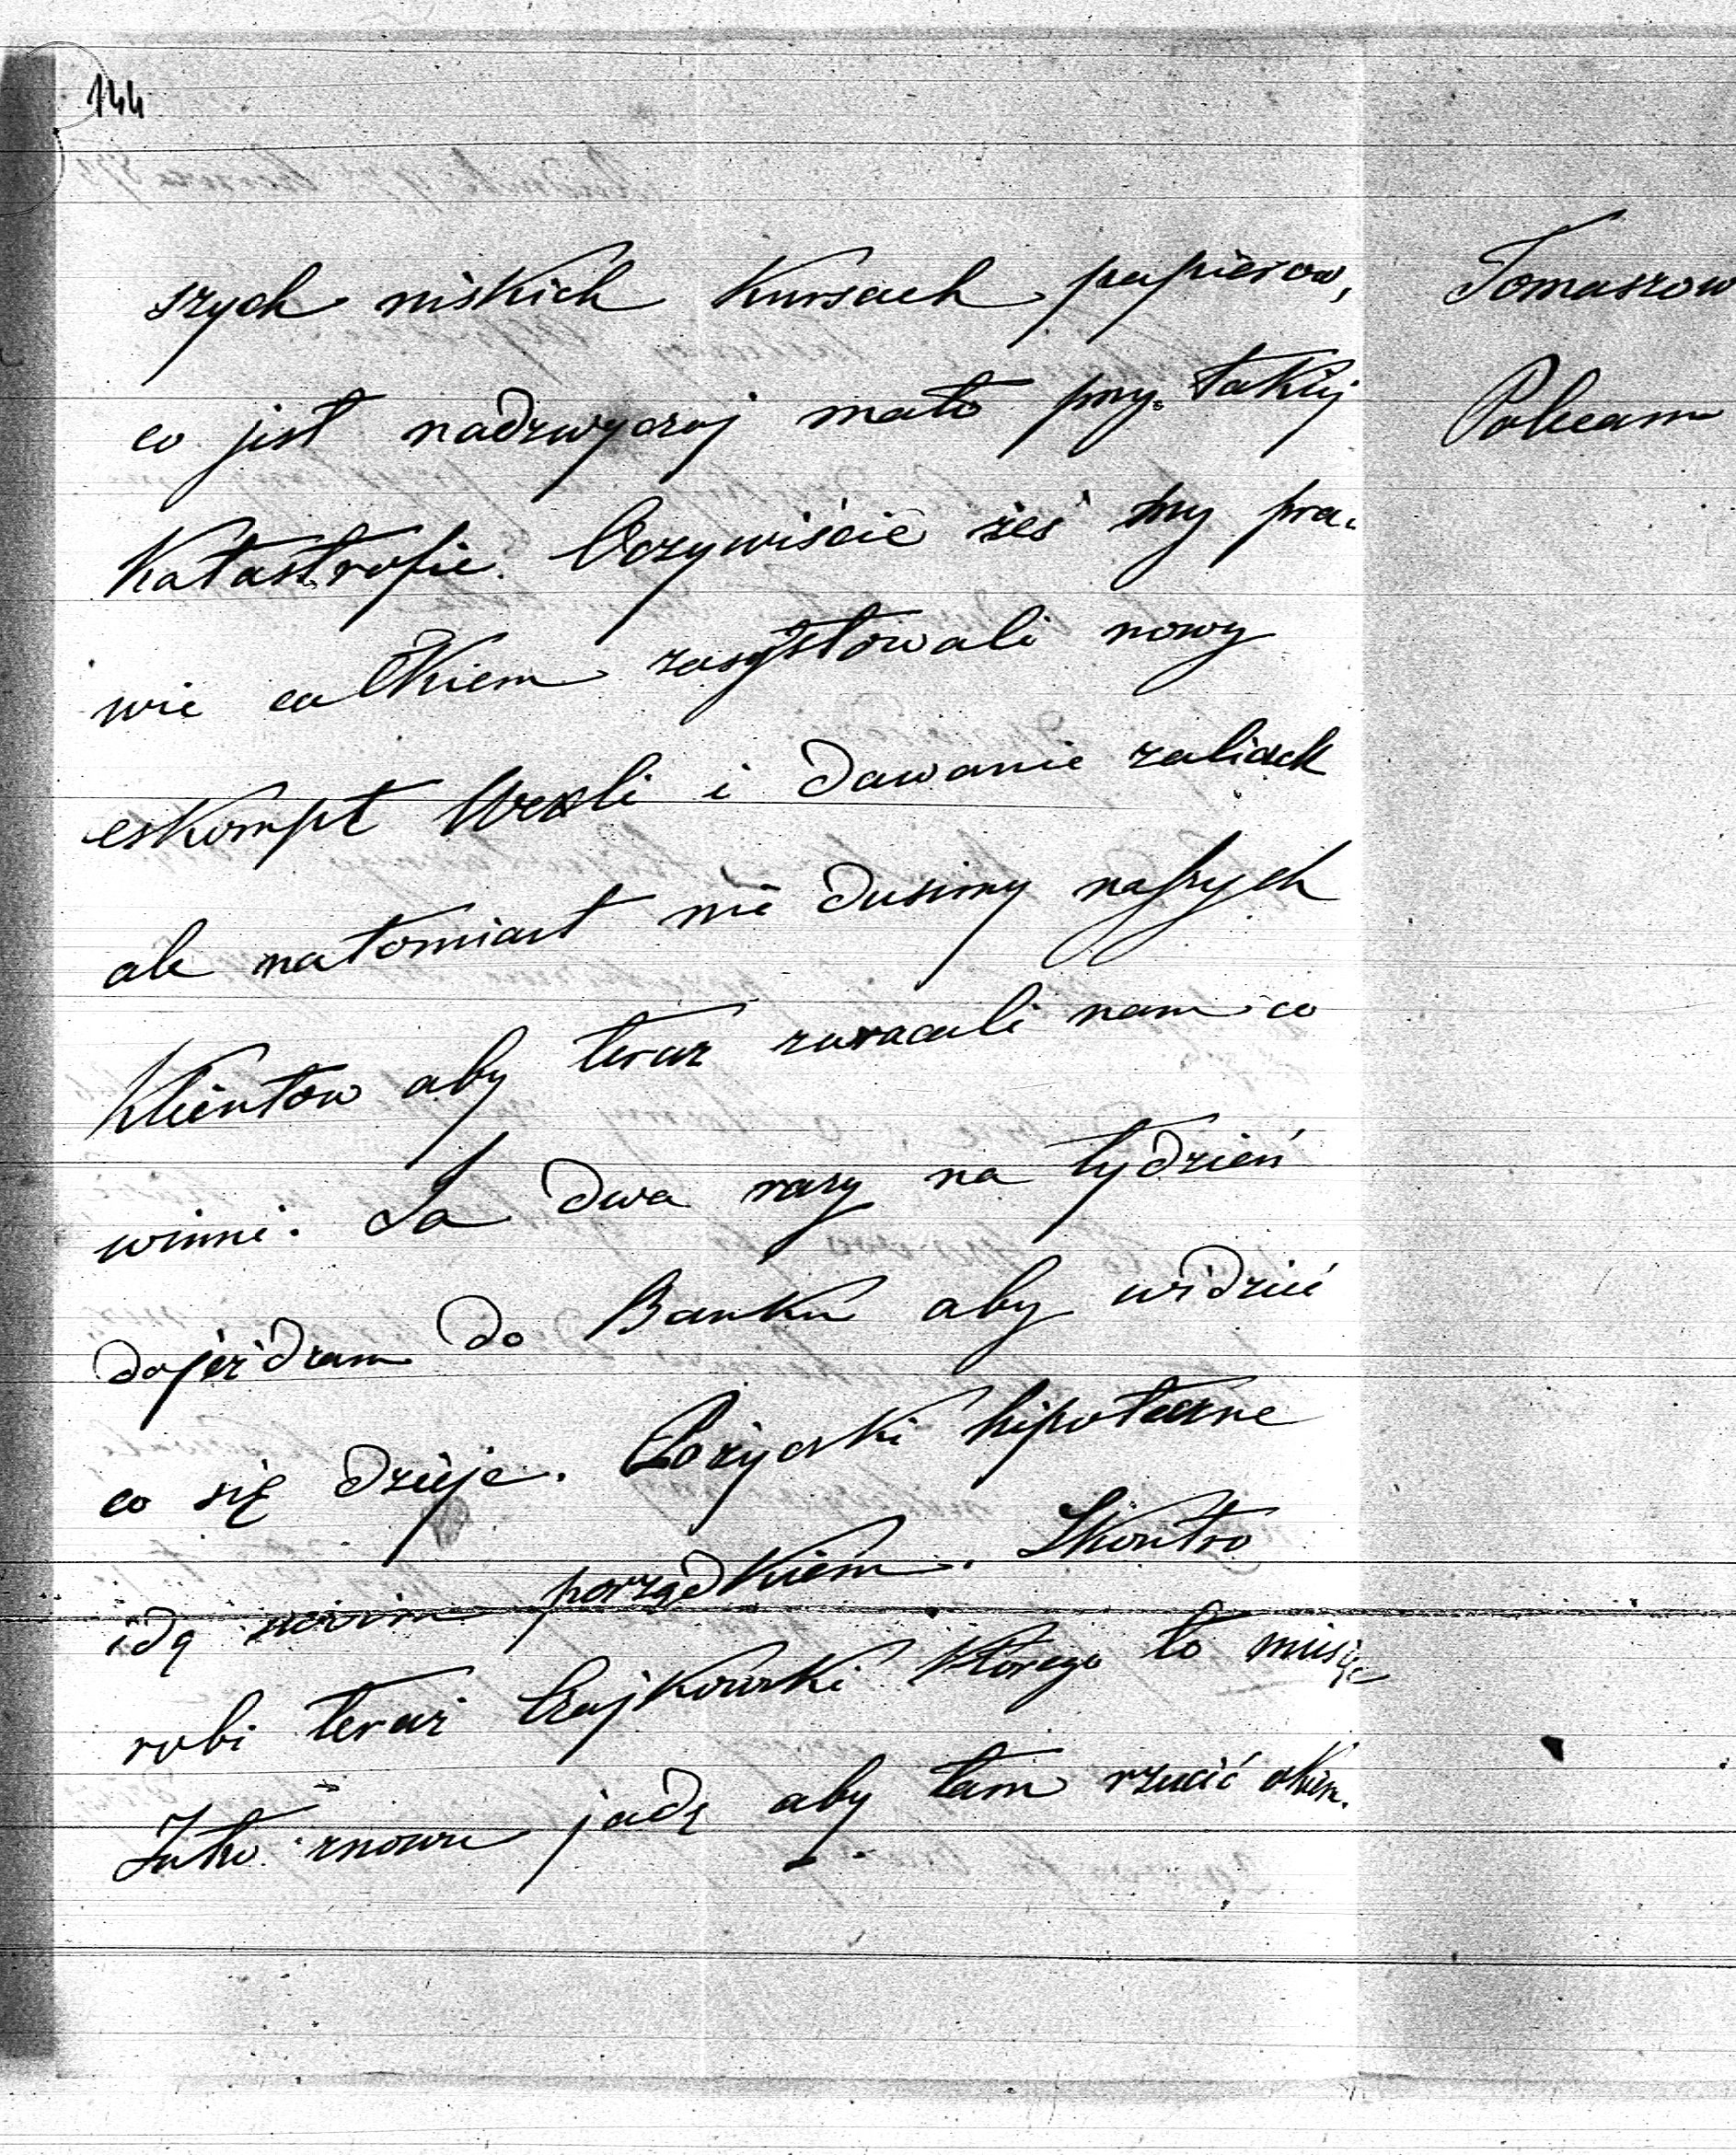 144
szych niskich kursach papierow,
co jest nadzwyczaj mało przy takiej
Katastrofie. Oczywiście żeś my pra-
wie całkiem zasystowali nowy
eskompt Wexli i dawanie zaliczek
ale natomiast nie dusimy naszych
Klientow aby teraz zwracali nam co
winni. Ja dwa razy na tydzień
dojeżdzam do Banku aby widzieć
co się dzieje. Pożyczki hipoteczne
idą swoim porządkiem. Skontro
robi teraz Czajkowski którego to miesiąc
Jutro znowu jadę aby tam rzucić okiem.
Tomaszow
Polecam